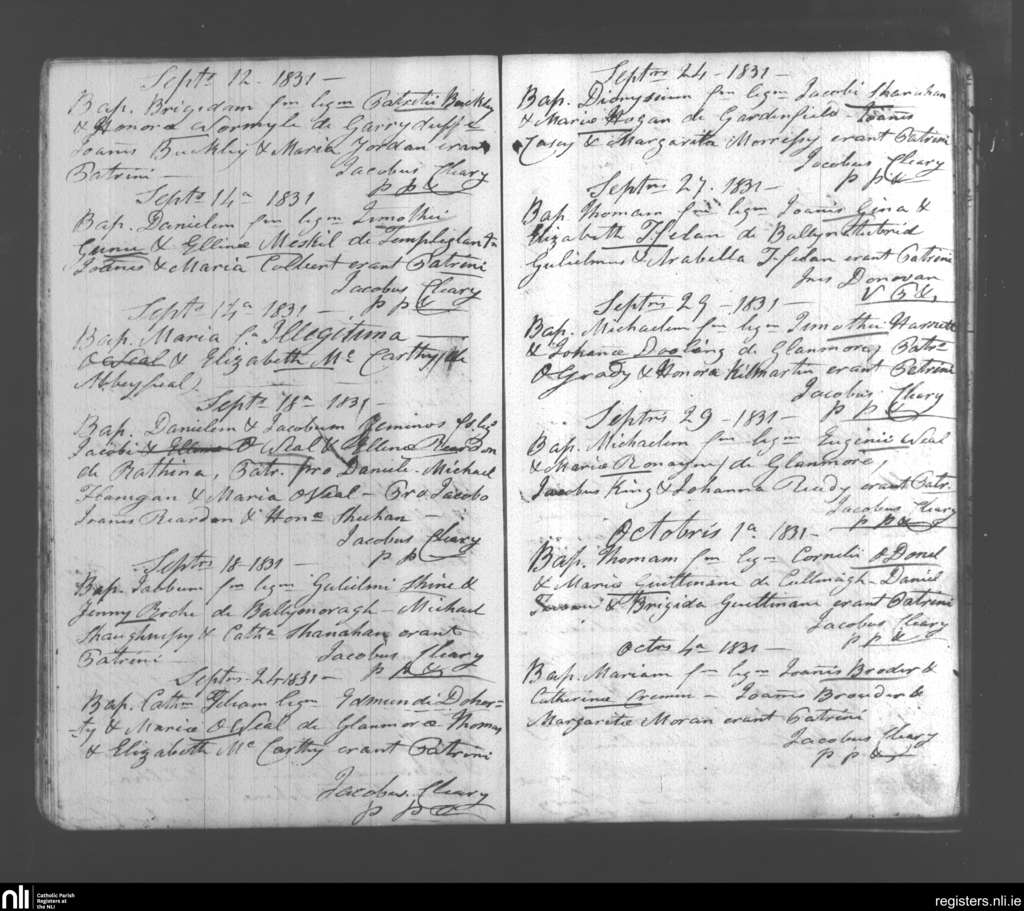 Septs 12 - 1831 -
Bap. Brigidam fm legm Patritii Buckley
& Honora Wormyle de Garryduff &
Joannis Buckley & Maria Jordan erant
Patrini -
Jacobus Cleary
P P &
Septs 14a 1831
Bap. Danielem fm legm Timothei
& Ellina Meskil de Templeglantn
Joannis & Maria Colbert erant Patrini
Jacobus Cleary
P P &
Septs 14a 1831 -
Bap. Maria fa Illegitima
O Neal & Elizabeth Mc Carthy de
Abbeyfeal
Septs 18a 1831 -
Bap. Danielem & Jacobum Geminos
Jacobi & Ellina O Neal & Ellina
de Rathina, Patr. Pro Daniele - Michael
Flanigan & Maria O Neal - Pro Jacobo
Joannis Reardon & Hona Sheehan -
Jacobus Cleary
P P
Septrs 18 - 1831 -
Bap. fm legm Gulielmi Shine &
Jenny Roche de Ballyonoragh - Michael
Shaughnessy & Catha Shanahan erant
Patrini -
Jacobus Cleary
P P &
Septrs - 24 1831 -
Bap. Cathn filiam legm Edmundi Doher-
-ty & Maria O Neal de Glanmore Thomas
& Elizabeth Mc Carthy erant Patrini
Jacobus Cleary
P P &
Septrs 24 - 1831 -
Bap. Dionysium fm legm Jacobi Shanahan
& Maria Hogan de Gardenfield - Joannis
Casey & Margarita Morressy erant Patrini
Jacobus Cleary
P P &
Septrs 27. 1831 -
Bap Thomam fm legm Joannis Gina &
Elizabeth de
Gulielmus & Arabella erant Patrini
Jms Donovan
Septrs 29 - 1831 -
Bap. Michaelem fm legm Timothei Harnett
& Johana Dooling de Glanmore, Patr.
O Grady & Honora Kilmartin erant Patrini
Jacobus Cleary
P P &
Septrs 29 - 1831 -
Bap. Michaelem fm legm Eugenii Neal
& Maria Ronayne, de Glanmore,
Jacobus King & Johanna Reidy erant Patr.
Jacobus Cleary
P P &
Octobris 1a 1831 -
Bap. Thomam fm legm Cornelii O Donel
& Maria de - Daniel
& Brigida erant Patrini
Jacobus Cleary
P P &
Octrs 4a 1831 -
Bap. Mariam fm legm Joannis Broder &
Catherina Cremin - Joannis Browder &
Margarita Moran erant Patrini
Jacobus Cleary
P P &
nli
Catholic Parish
Registers at
the NLI
registers.nli.ie